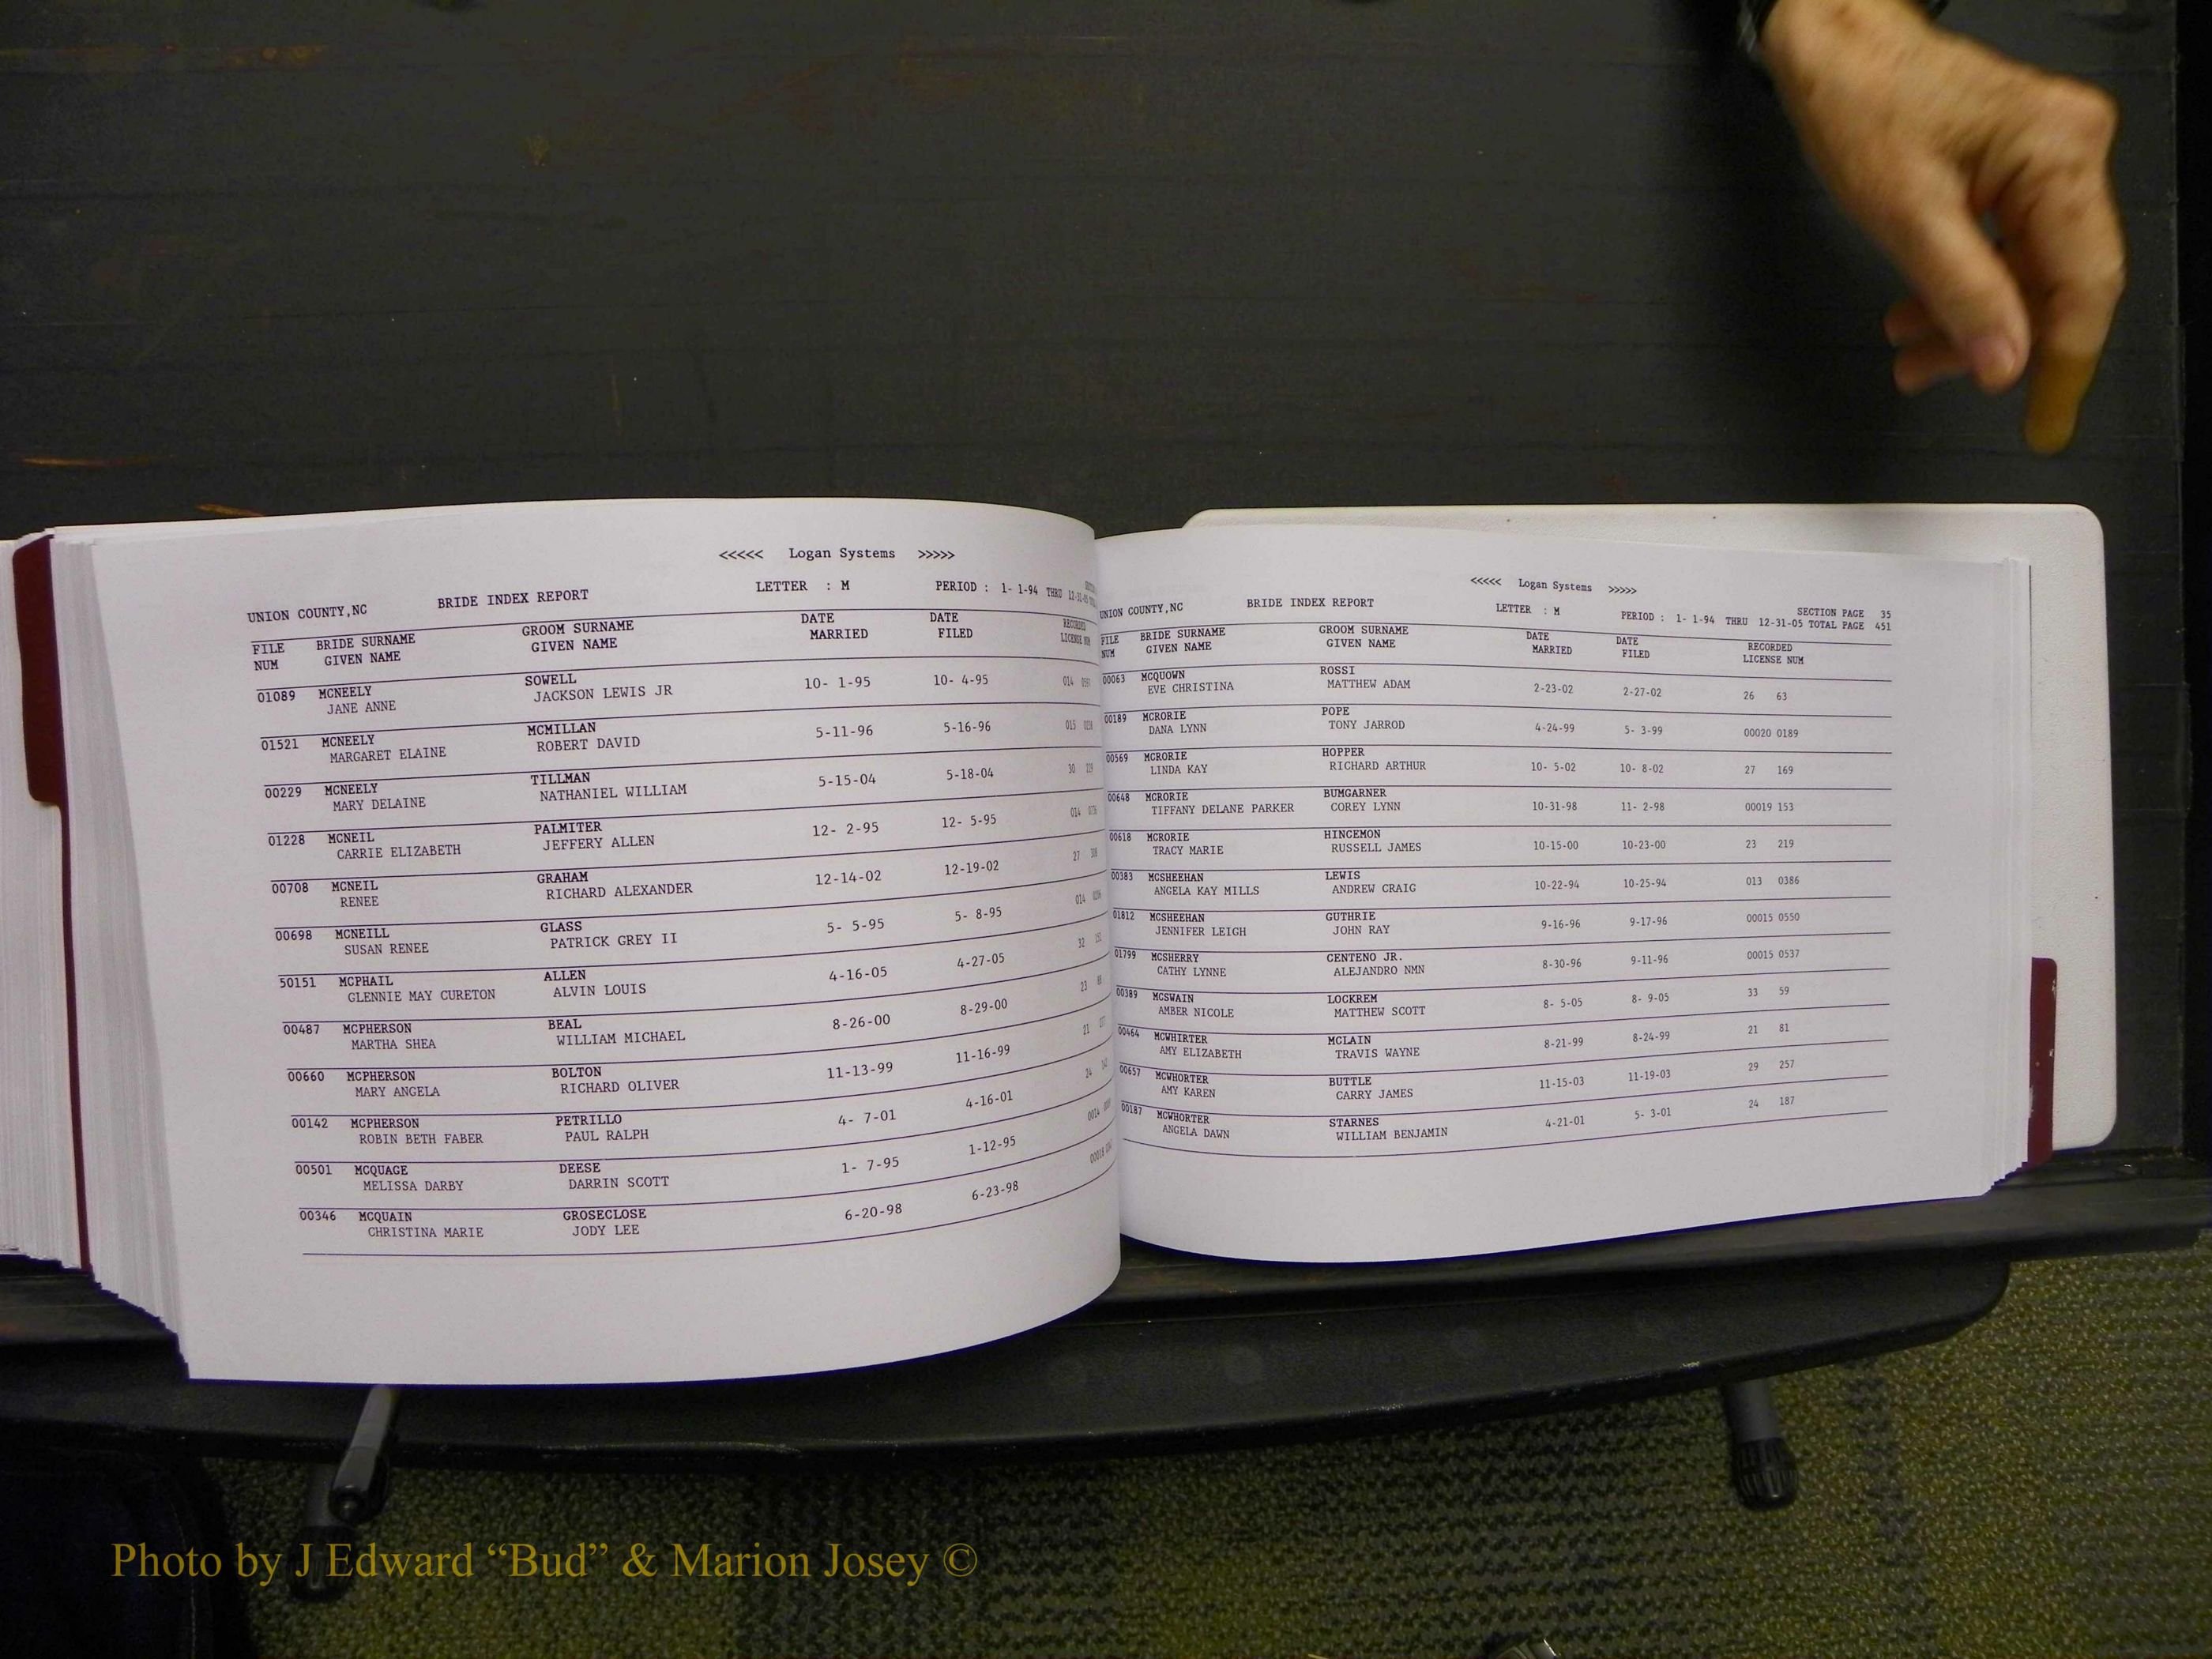 <<<<< Logan Systems >>>>>
UNION COUNTY,NC BRIDE INDEX REPORT LETTER : M PERIOD : 1- 1-94 THRU
FILE BRIDE SURNAME GROOM SURNAME DATE DATE RECORDED
NUM GIVEN NAME GIVEN NAME MARRIED FILED LICENSE NUM
01089 MCNEELY SOWELL 10- 1-95 10- 4-95 014
JANE ANNE JACKSON LEWIS JR
01521 MCNEELY MCMILLAN 5-11-96 5-16-96 015
MARGARET ELAINE ROBERT DAVID
00229 MCNEELY TILLMAN 5-15-04 5-18-04 30
MARY DELAINE NATHANIEL WILLIAM
01228 MCNEIL PALMITER 12- 2-95 12- 5-95 014
CARRIE ELIZABETH JEFFERY ALLEN
00708 MCNEIL GRAHAM 12-14-02 12-19-02 27
RENEE RICHARD ALEXANDER
00698 MCNEILL GLASS 5- 5-95 5- 8-95 014
SUSAN RENEE PATRICK GREY II
50151 MCPHAIL ALLEN 4-16-05 4-27-05 32
GLENNIE MAY CURETON ALVIN LOUIS
00487 MCPHERSON BEAL 8-26-00 8-29-00 23
MARTHA SHEA WILLIAM MICHAEL
00660 MCPHERSON BOLTON 11-13-99 11-16-99 21
MARY ANGELA RICHARD OLIVER
00142 MCPHERSON PETRILLO 4- 7-01 4-16-01 24
ROBIN BETH FABER PAUL RALPH
00501 MCQUAGE DEESE 1- 7-95 1-12-95 0014
MELISSA DARBY DARRIN SCOTT
00346 MCQUAIN GROSECLOSE 6-20-98 6-23-98 00018
CHRISTINA MARIE JODY LEE
<<<<< Logan Systems >>>>>
UNION COUNTY,NC BRIDE INDEX REPORT LETTER : M SECTION PAGE 35
PERIOD : 1- 1-94 THRU 12-31-05 TOTAL PAGE 451
FILE BRIDE SURNAME GROOM SURNAME DATE DATE RECORDED
NUM GIVEN NAME GIVEN NAME MARRIED FILED LICENSE NUM
00063 MCQUOWN ROSSI 2-23-02 2-27-02 26 63
EVE CHRISTINA MATTHEW ADAM
00189 MCRORIE POPE 4-24-99 5- 3-99 00020 0189
DANA LYNN TONY JARROD
00569 MCRORIE HOPPER 10- 5-02 10- 8-02 27 169
LINDA KAY RICHARD ARTHUR
00648 MCRORIE BUMGARNER 10-31-98 11- 2-98 00019 153
TIFFANY DELANE PARKER COREY LYNN
00618 MCRORIE HINCEMON 10-15-00 10-23-00 23 219
TRACY MARIE RUSSELL JAMES
00383 MCSHEEHAN LEWIS 10-22-94 10-25-94 013 0386
ANGELA KAY MILLS ANDREW CRAIG
01812 MCSHEEHAN GUTHRIE 9-16-96 9-17-96 00015 0550
JENNIFER LEIGH JOHN RAY
01799 MCSHERRY CENTENO JR. 8-30-96 9-11-96 00015 0537
CATHY LYNNE ALEJANDRO NMN
00389 MCSWAIN LOCKREM 8- 5-05 8- 9-05 33 59
AMBER NICOLE MATTHEW SCOTT
00464 MCWHIRTER MCLAIN 8-21-99 8-24-99 21 81
AMY ELIZABETH TRAVIS WAYNE
00657 MCWHORTER BUTTLE 11-15-03 11-19-03 29 257
AMY KAREN CARRY JAMES
00187 MCWHORTER STARNES 4-21-01 5- 3-01 24 187
ANGELA DAWN WILLIAM BENJAMIN
Photo by J Edward “Bud” & Marion Josey ©